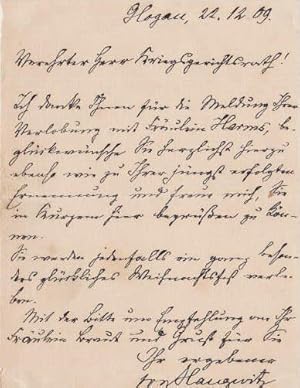 Glogau, 22.12.09.
Verehrter Herr Kriegsgerichtsrath!
Ich danke Ihnen für die Meldung Ihrer
Verlobung mit Fräulein Harms, be-
glückwünsche Sie herzlichst hierzu
ebenso wie zu Ihrer jüngst erfolgten
Ernennung und freue mich, Sie
in Kurzem hier begrüßen zu kön-
nen.
Sie werden jedenfalls ein ganz beson-
ders glückliches Weihnachtsfest verle-
ben.
Mit der Bitte um Empfehlung an Ihr
Fräulein Braut und Gruß für Sie
Ihr ergebener